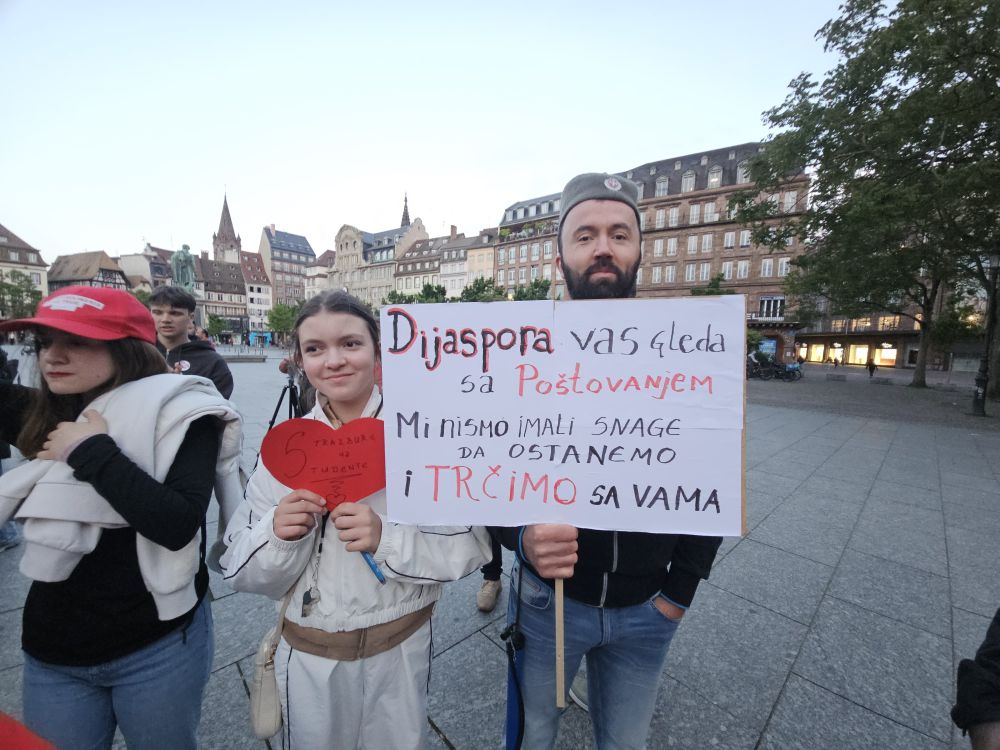 Dijaspora vas gleda
sa Poštovanjem
Mi nismo imali SNAGE
DA OSTANEMO
i TRČIMO SA VAMA
STRAZBUR
za
STUDENTE